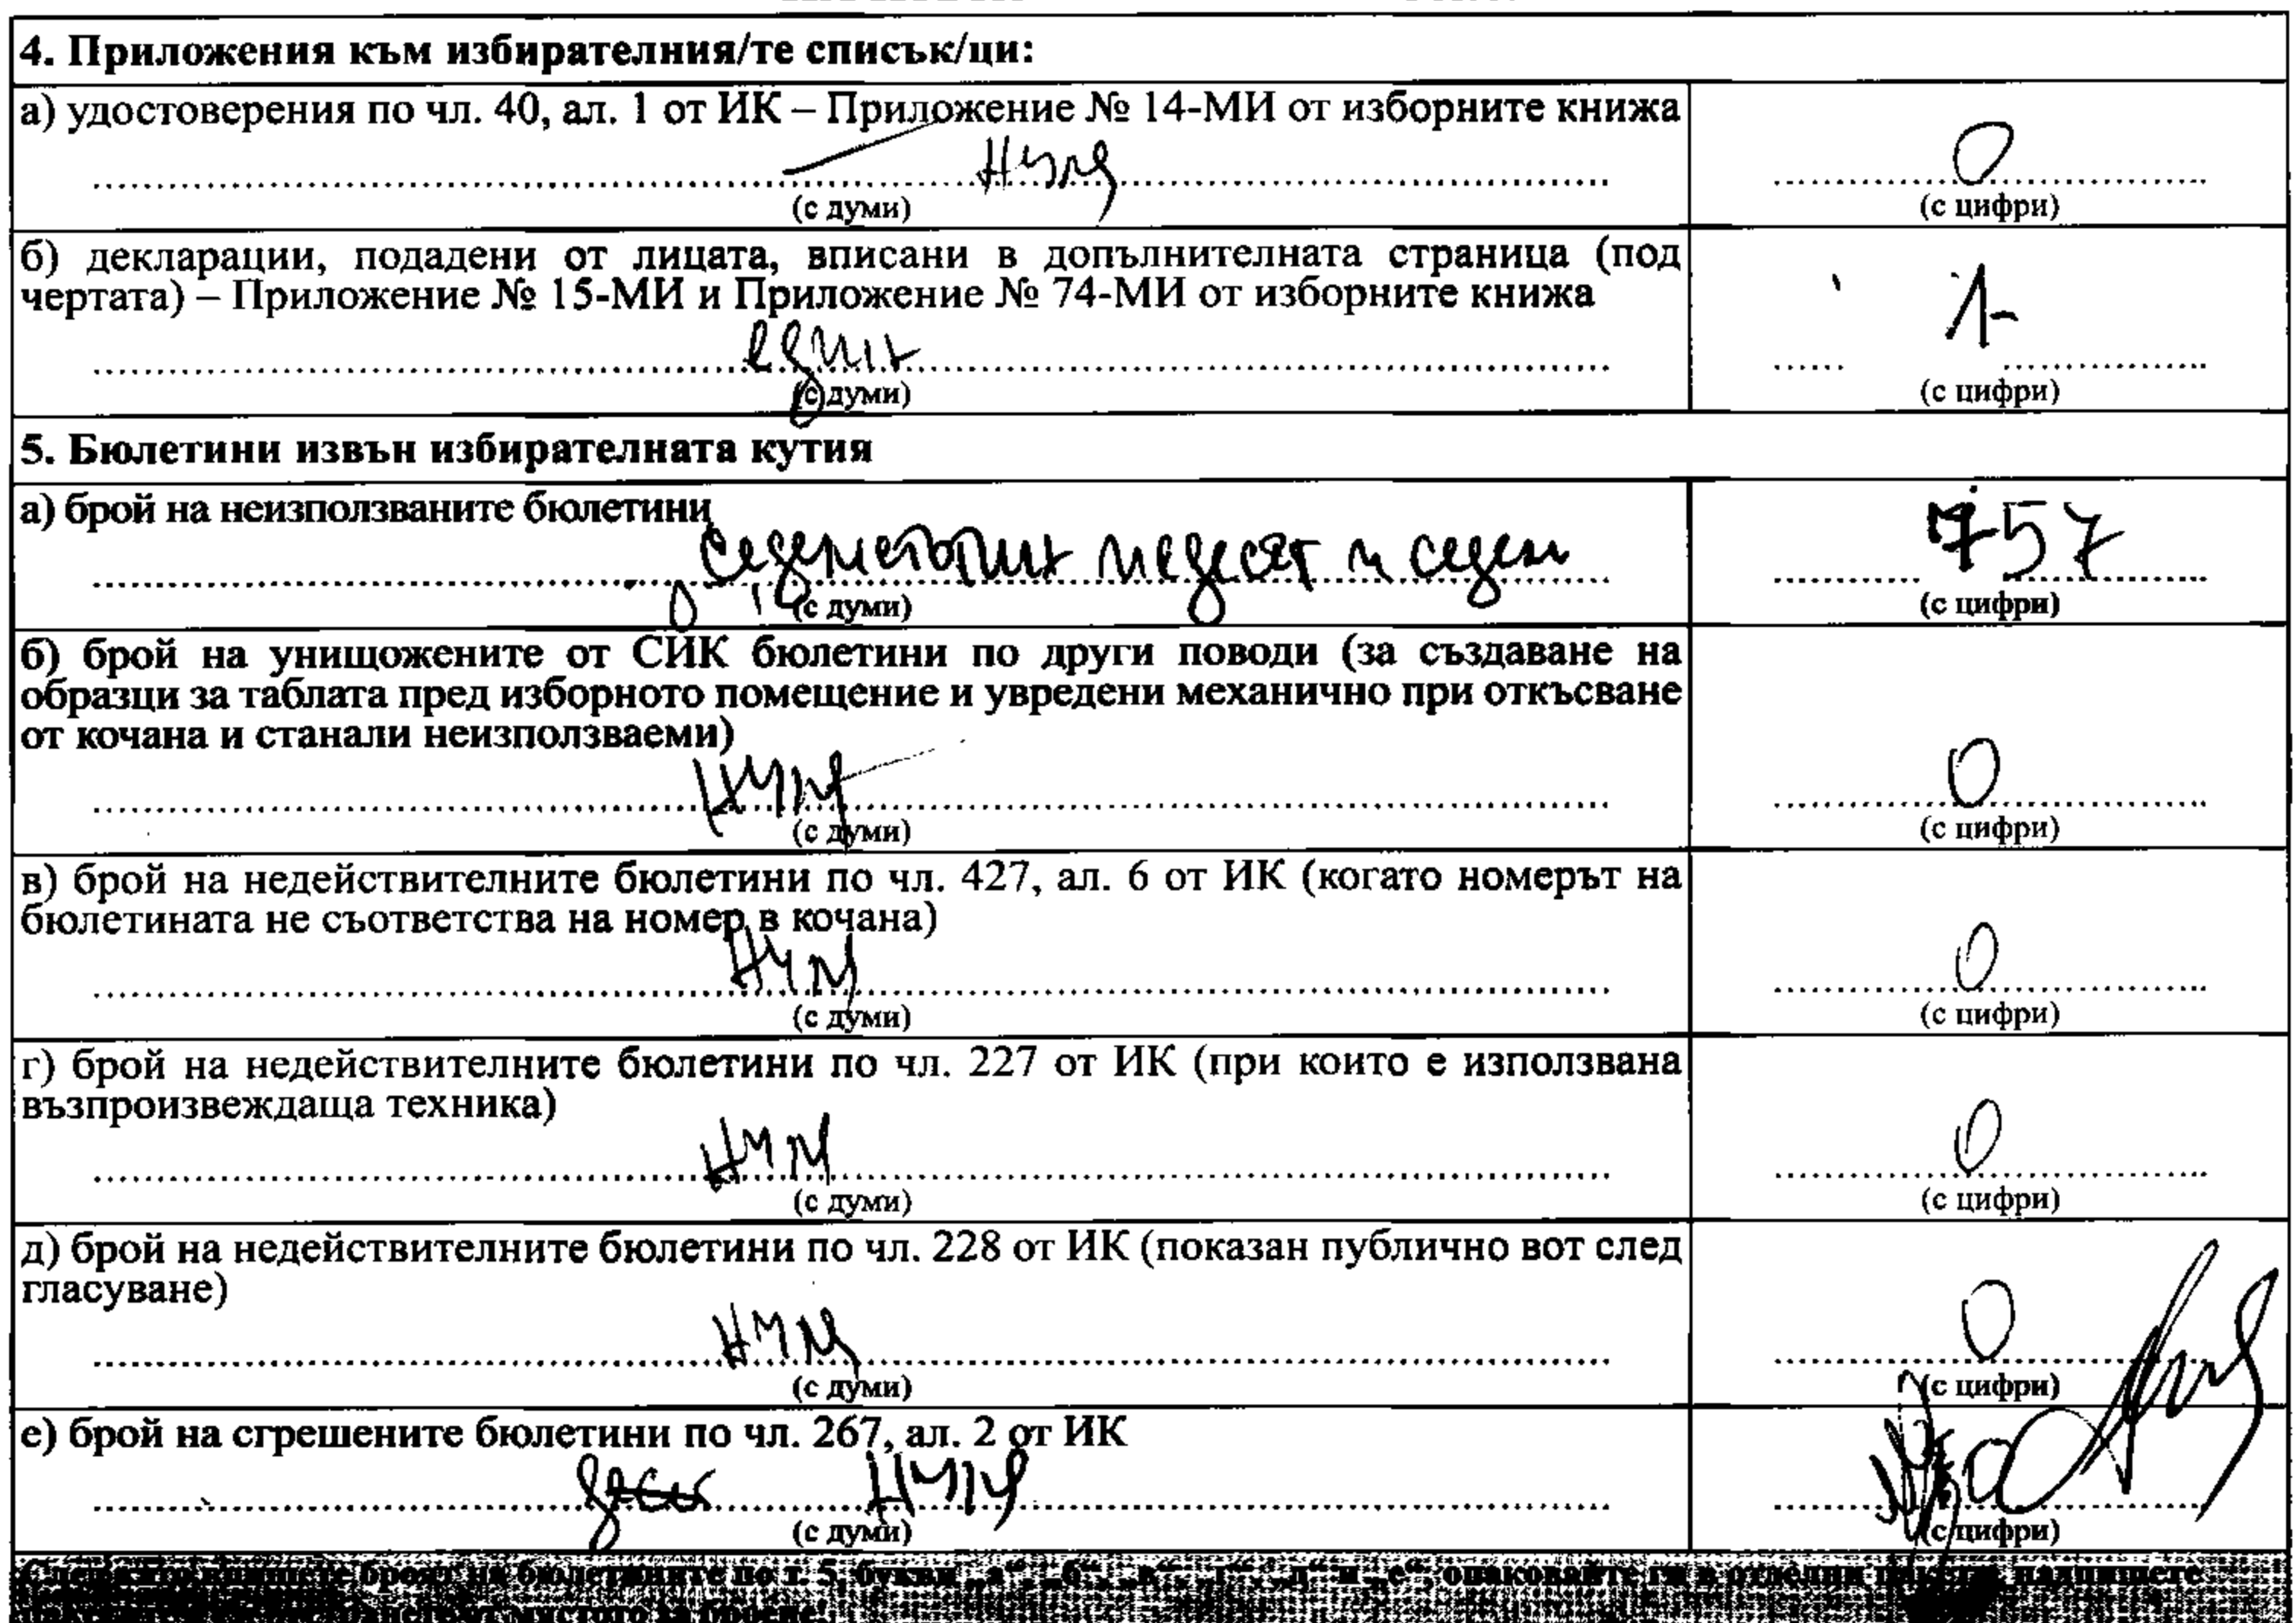 4. Приложения към избирателния/те списък/ци:
а) удостоверения по чл. 40, ал. 1 от ИК – Приложение № 14-МИ от изборните книжа
нула 0
(с думи) (с цифри)
б) декларации, подадени от лицата, вписани в допълнителната страница (под
чертата) – Приложение № 15-МИ и Приложение № 74-МИ от изборните книжа
един 1-
(с думи) (с цифри)
5. Бюлетини извън избирателната кутия
а) брой на неизползваните бюлетини
седемстотин педесят и седем 757
(с думи) (с цифри)
б) брой на унищожените от СИК бюлетини по други поводи (за създаване на
образци за таблата пред изборното помещение и увредени механично при откъсване
от кочана и станали неизползваеми)
нула 0
(с думи) (с цифри)
в) брой на недействителните бюлетини по чл. 427, ал. 6 от ИК (когато номерът на
бюлетината не съответства на номер в кочана)
нула 0
(с думи) (с цифри)
г) брой на недействителните бюлетини по чл. 227 от ИК (при които е използвана
възпроизвеждаща техника)
нула 0
(с думи) (с цифри)
д) брой на недействителните бюлетини по чл. 228 от ИК (показан публично вот след
гласуване)
нула 0
(с думи) (с цифри)
е) брой на сгрешените бюлетини по чл. 267, ал. 2 от ИК
нула 0
(с думи) (с цифри)
След като впишете броят на бюлетините по т. 5, букви „а“, „б“, „в“, „г“, „д“ и „е“, опаковайте ги в отделни пакети, надпишете
от мястото за броене.